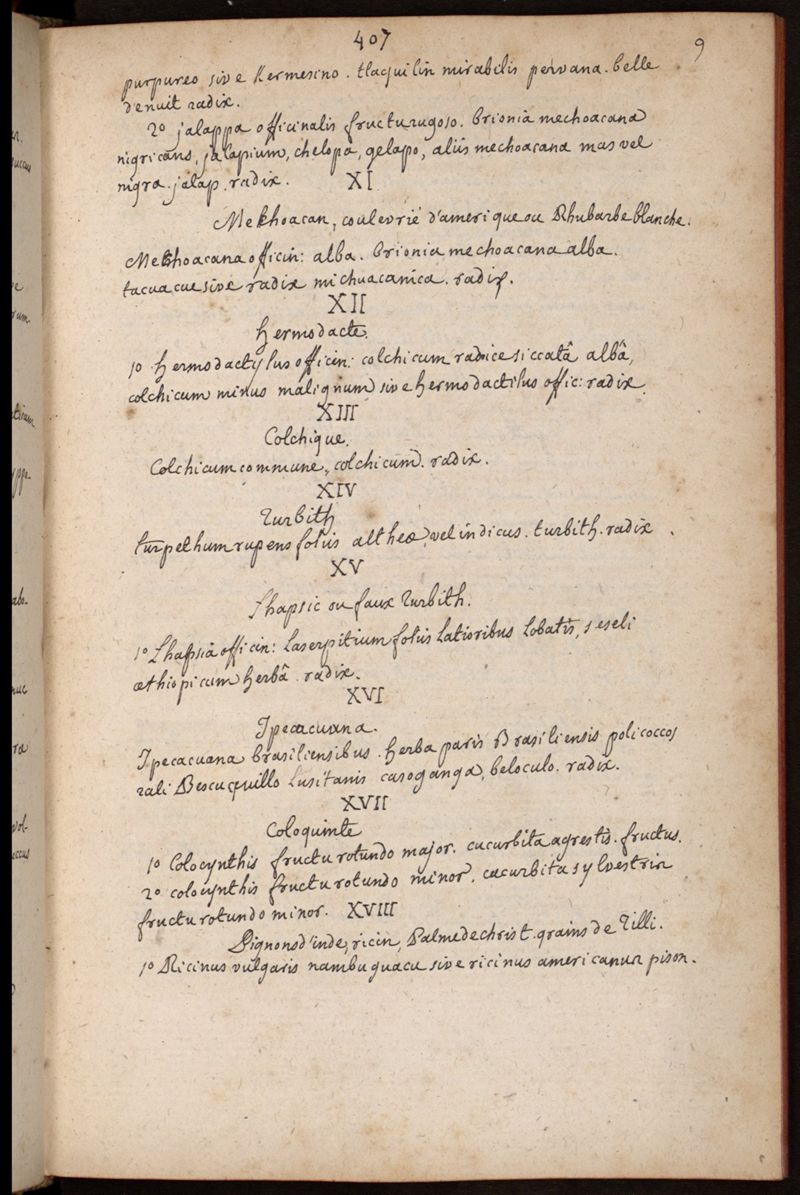 407
9
purpureo sive Kermesino. tlaquilin mirabilis peruvana. belle
denuit radix.
2º jalappa officinalis fructu rugoso. brionia mechoacana
nigricans, jalapium, chelopa, gelapo, aliis mechoacana mas vel
nigra. jalap. radix. XI
Mekhoacan, coulevrié d'amerique ou Rhubarbe blanche.
Mekhoacana officin: alba. brionia mechoacana alba.
tacuacue sive radix michuacanica. radix.
XII
hermodacte.
1º hermodactylus officin: colchicum radice siccatâ albâ,
colchicum minus malignum sive hermodactilus offic: radix.
XIII
Colchique.
Colchicum commune, colchicum. radix.
XIV
Turbith
turpethum rupens foliis altheæ, vel indicus. turbith. radix.
XV
Thapsic ou faux Turbith.
1º Thapsia officin: Laserpitium foliis latioribus lobatis, seseli
æthiopicum herbâ. radix.
XVI
Ipecacuana.
Ipecacuana brasiliensibus. herba paris Brasiliensis policoccos
raii Bescuçquillo Lusitanis casoganga, beloculo. radix.
XVII
Coloquinte
1º Colocynthis fructu rotundo major. cucurbita agrestis. fructus.
2º colocynthis fructu rotundo minor. cucurbita sylvestrix
fructu rotundo minor. XVIII
Pignons d'inde, ricin, Palme de christ. grains de Tilli.
1º Ricinus vulgaris nambuguacu sive ricinus americanus pison.